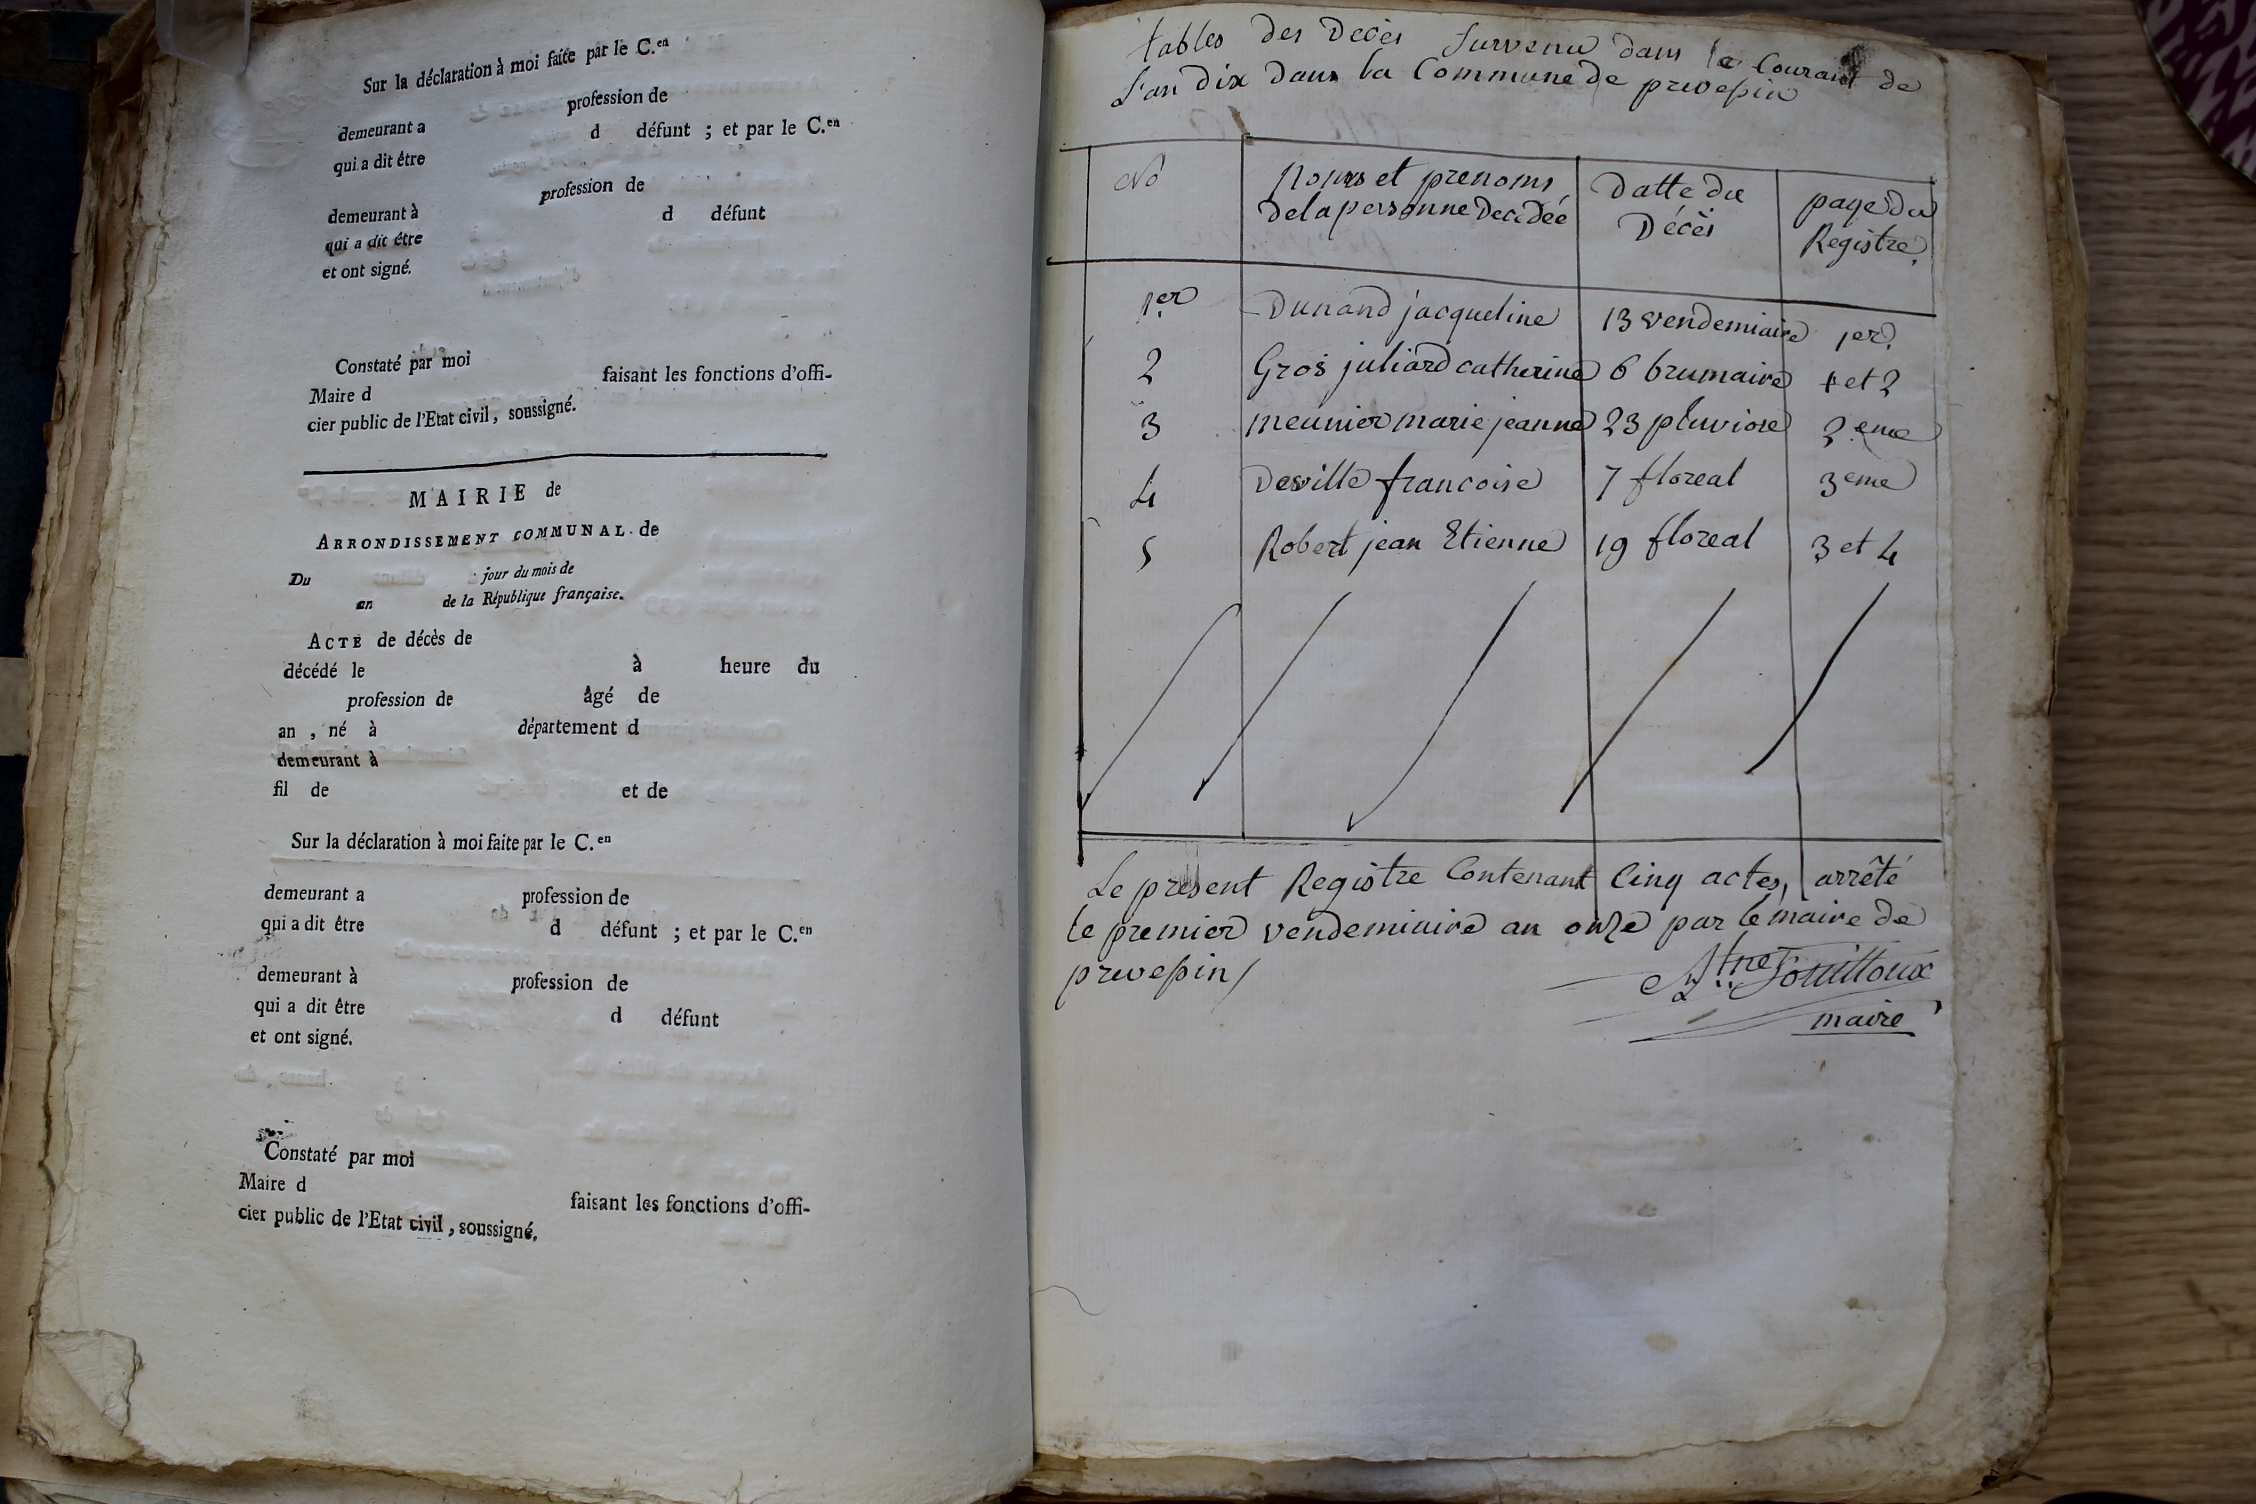 Sur la déclaration à moi faite par le C.en
profession de
demeurant a
d défunt ; et par le C.en
qui a dit être
profession de
demeurant à
d défunt
qui a dit être
et ont signé.
Constaté par moi
Maire d faisant les fonctions d'offi-
cier public de l'Etat civil, soussigné.
MAIRIE de
ARRONDISSEMENT COMMUNAL de
Du jour du mois de
an de la République française.
ACTE de décès de
décédé le à heure du
profession de âgé de
an , né à département d
demeurant à
fil de et de
Sur la déclaration à moi faite par le C.en
demeurant a profession de
qui a dit être d défunt ; et par le C.en
demeurant à profession de
qui a dit être d défunt
et ont signé.
Constaté par moi
Maire d faisant les fonctions d'offi-
cier public de l'Etat civil, soussigné.
tables des Decès Survenu dans le Courant de
L'an dix dans la Commune de prevessin
No Noms et prenoms de la personne Decidéé Datte du Décès page du Registre.
1er Dunand jacqueline 13 vendemiaire 1er.
2 Gros juliard catherine 6 brumaire 1 et 2
3 meunier marie jeanne 23 pluviose 2eme
4 Deville francoise 7 floreal 3eme
5 Robert jean Etienne 19 floreal 3 et 4
Le present Registre Contenant Cinq actes, arrêté
le premier vendemiaire an onze par le maire de
prevessin /
maire